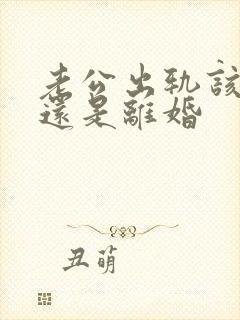 老公出轨该
還是離婚
丑萌